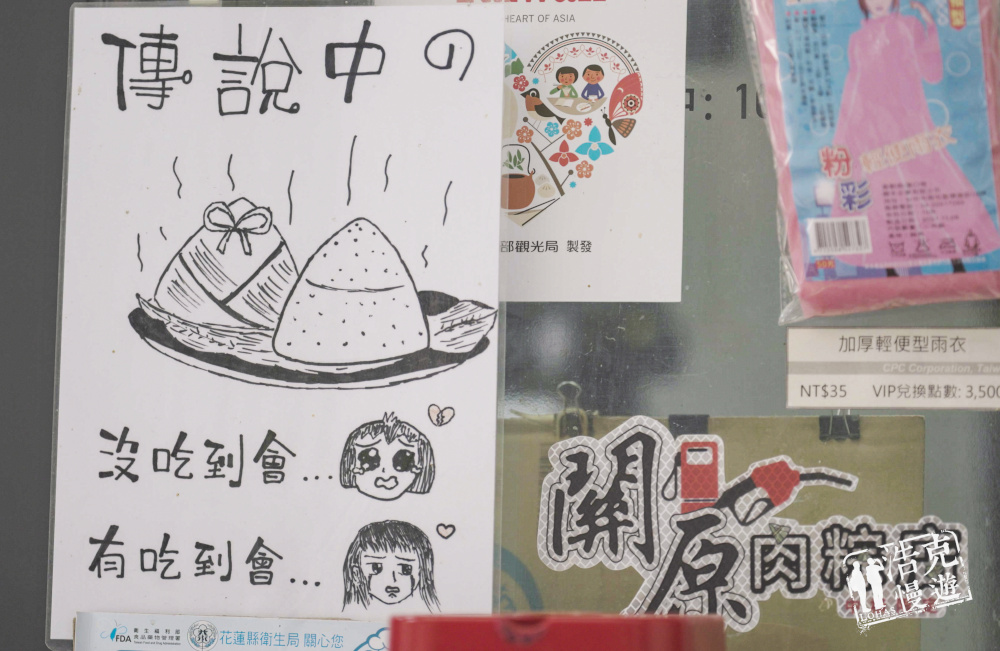 傳說中の
沒吃到會...
有吃到會...
HEART OF ASIA
部觀光局 製發
粉彩
加厚輕便型雨衣
CPC Corporation, Taiw
NT$35 VIP兌換點數: 3,500
關原
肉粽
FDA 衛生福利部
食品藥物管理署
花蓮縣衛生局 關心您
浩克慢遊
LOHAS